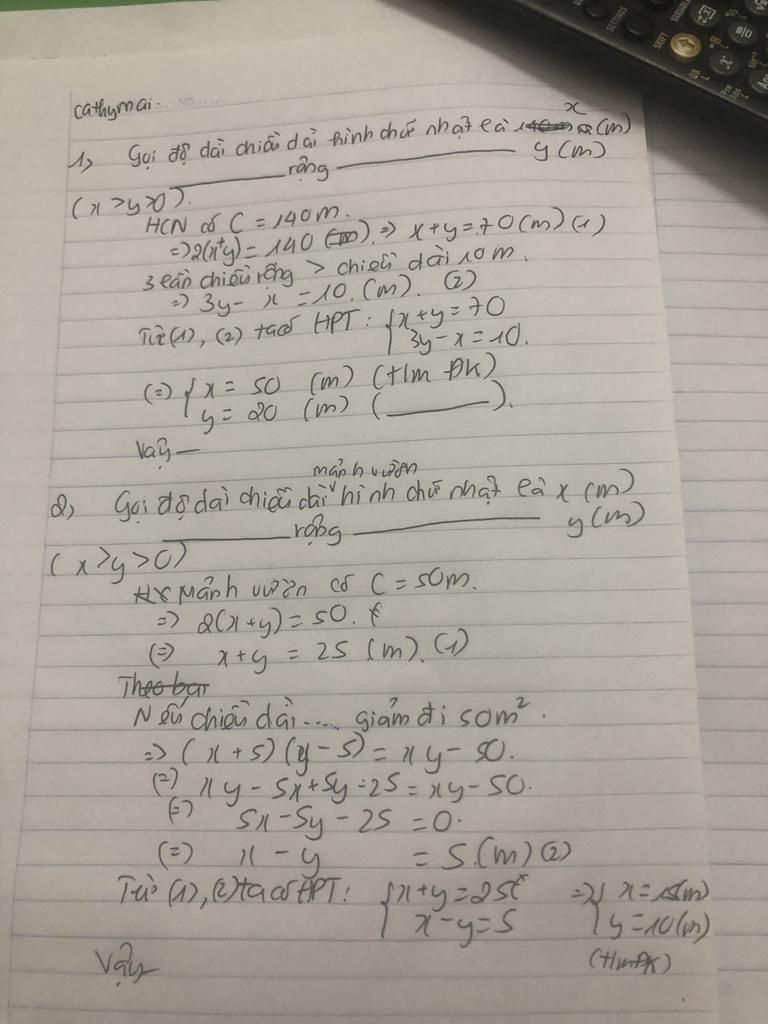 cathymai.
1, Gọi độ dài chiều dài hình chữ nhật là x (m)
——— rộng ——— y (m)
(x > y > 0).
HCN có C = 140m.
=> 2(x+y) = 140 => x + y = 70 (m) (1)
3 lần chiều rộng > chiều dài 10m.
=> 3y - x = 10. (m). (2)
Từ (1), (2) ta có HPT: { x + y = 70
3y - x = 10.
(=) { x = 50 (m) (t/m ĐK)
y = 20 (m) (———).
Vậy —
mảnh vườn
2, Gọi độ dài chiều dài ᵛ hình chữ nhật là x (m)
——— rộng ——— y (m)
(x > y > 0)
Mảnh vườn có C = 50m.
=> 2(x + y) = 50.
(=) x + y = 25 (m). (1)
Theo bài
Nếu chiều dài .... giảm đi 50m².
=> (x + 5)(y - 5) = xy - 50.
(=) xy - 5x + 5y - 25 = xy - 50.
(=) 5x - 5y - 25 = 0.
(=) x - y = 5.(m) (2)
Từ (1), (2) ta có HPT: { x + y = 25 => { x = 15(m)
x - y = 5 y = 10(m)
Vậy (t/m ĐK)